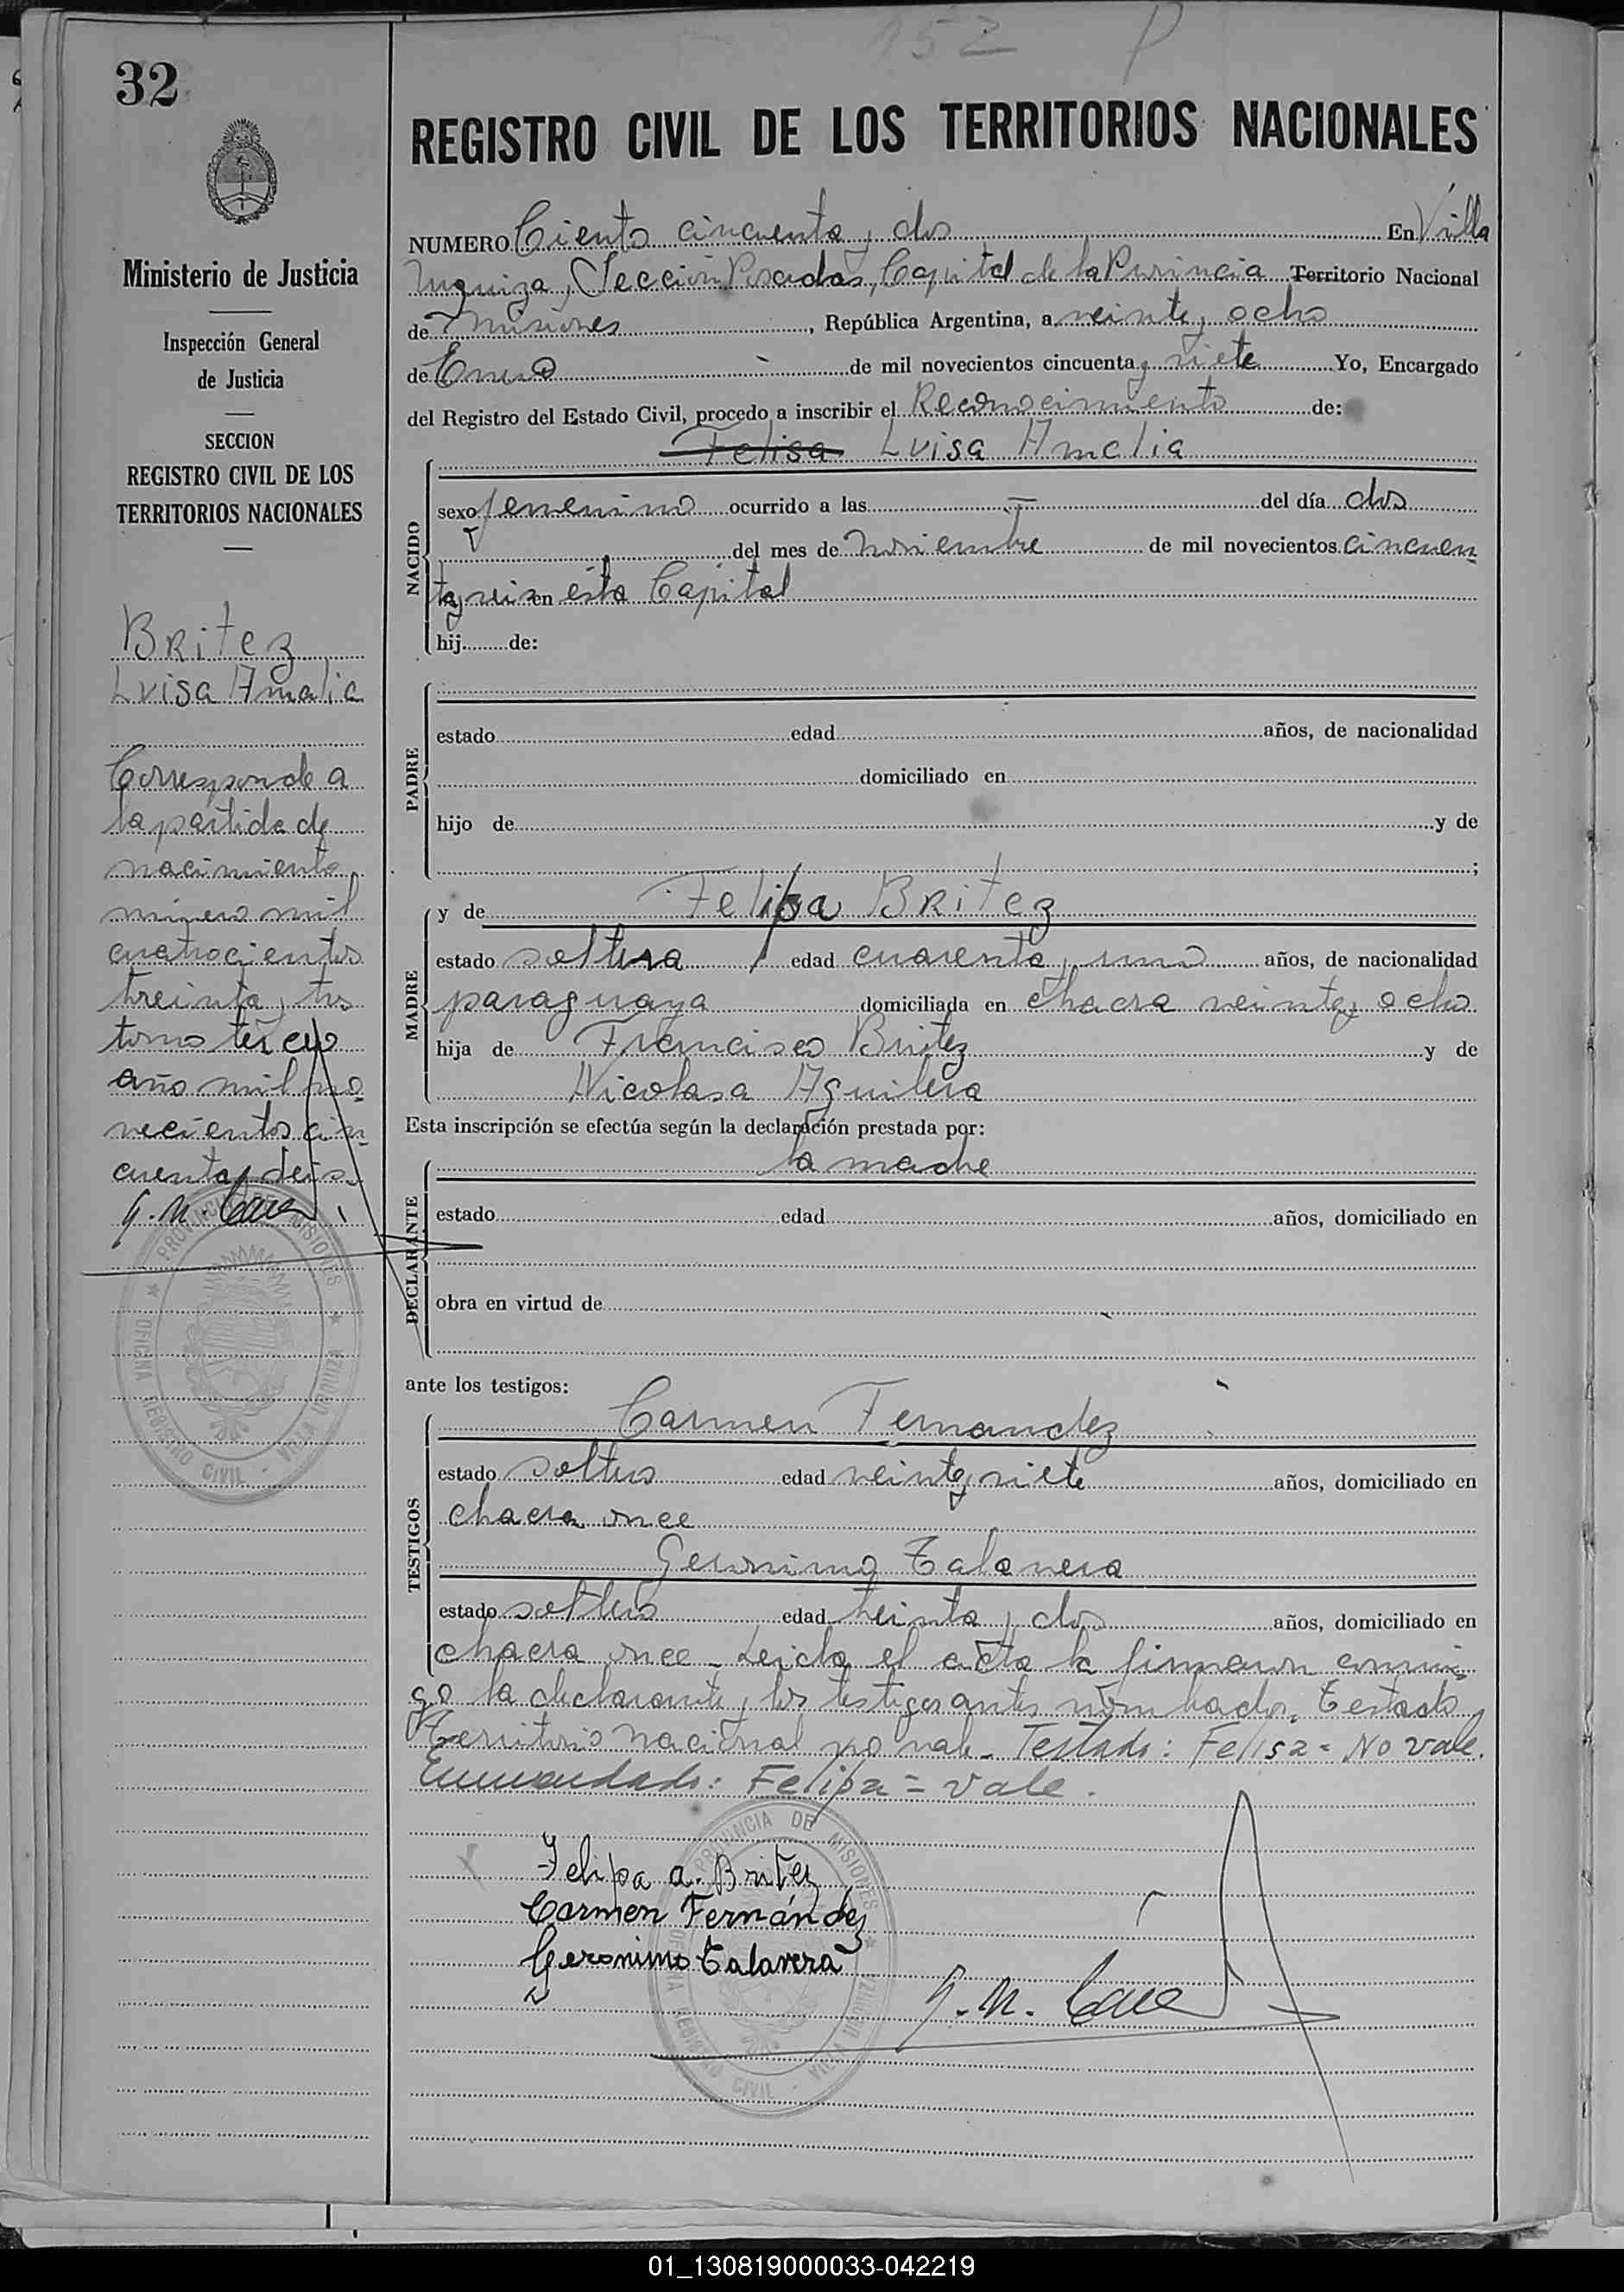 152 P
32
REGISTRO CIVIL DE LOS TERRITORIOS NACIONALES
Ministerio de Justicia
Inspección General
de Justicia
SECCION
REGISTRO CIVIL DE LOS
TERRITORIOS NACIONALES
Britez
Luisa Amalia
Corresponde a
la partida de
nacimiento
número mil
cuatrocientos
treinta y tres
tomo tercero
año mil no
vecientos cin
cuenta y seis
PROVINCIA DE MISIONES
OFICINA REGISTRO CIVIL - VILLA URQUIZA
NUMERO Ciento cincuenta y dos En Villa
Urquiza, Sección Posadas, Capital de la Provincia Territorio Nacional
de Misiones, República Argentina, a veinte y ocho
de Enero de mil novecientos cincuenta y siete Yo, Encargado
del Registro del Estado Civil, procedo a inscribir el Reconocimiento de:
Felisa Luisa Amalia
NACIDO
sexo femenino ocurrido a las — del día dos
del mes de Noviembre de mil novecientos cincuen
ta y seis en esta Capital
hij de:
PADRE
estado edad años, de nacionalidad
domiciliado en
hijo de y de
;
MADRE
y de Felipa Britez
estado soltera edad cuarenta y uno años, de nacionalidad
paraguaya domiciliada en chacra veinte y ocho
hija de Francisco Britez y de
Nicolasa Aguilera
Esta inscripción se efectúa según la declaración prestada por:
la madre
DECLARANTE
estado edad años, domiciliado en
obra en virtud de
ante los testigos:
TESTIGOS
Carmen Fernandez
estado soltero edad veinte y siete años, domiciliado en
chacra once
Geronimo Talavera
estado soltero edad treinta y dos años, domiciliado en
chacra once - Leida el acta la firmaron conmi
go la declarante y los testigos antes nombrados. Testado
Territorio Nacional no vale - Testado: Felisa = No vale.
Enmendado: Felipa = vale.
Felipa a. Britez
Carmen Fernández
Geronimo Talavera
PROVINCIA DE MISIONES
OFICINA REGISTRO CIVIL - VILLA URQUIZA
01_130819000033-042219